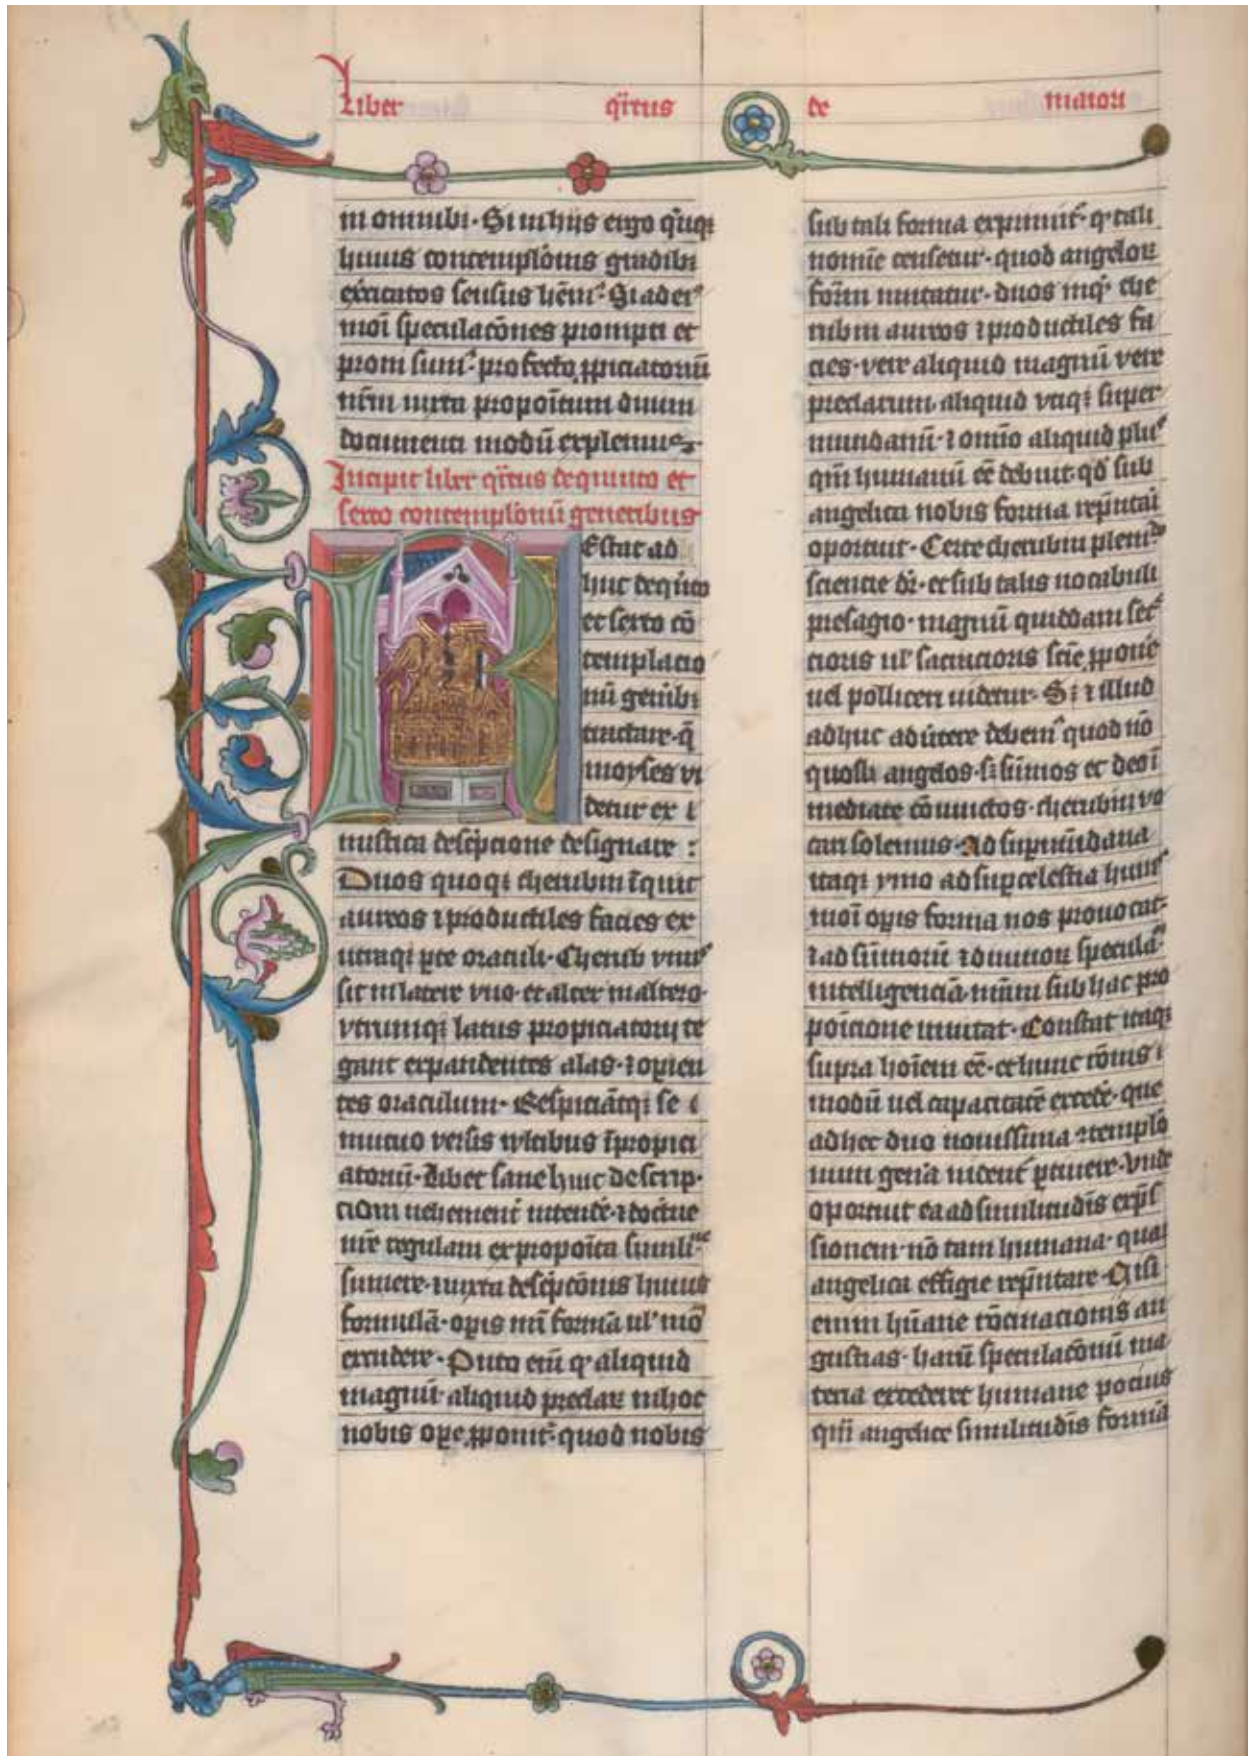 Liber q̄rtus de maiori
in omnibꝫ · Si in hiis ergo q̄tuqꝫ
huius contemplōnis gradibꝫ
exercitatos sensus hēm᷒ · Si ad ei᷒
moī speculacōnes prompti et
proni sum᷒ · profecto ꝓpiciatoriū
nr̄m iuxta propoītum diuini
documenti modū expleuim᷒
Incipit liber q̄rtus de quinto et
sexto contemplōnū generibus
REstat ad
huc de q̇nto
et sexto cō
templacio
nū gn̄ibꝫ
tractare · q̄
moyses vi
detur ex ī
mistica desc̄pcione designare :
Duos quoqꝫ cherubin īquit
aureos ⁊ productiles facies ex
utraqꝫ ꝑte oraculi · Cherub vnus
sit in latere vno · et alter in altero ·
vtrumqꝫ latus propiciatorij te
gant expandentes alas · ⁊ oꝑien
tes oraculum · Respiciātqꝫ se
mutuo versis vltibus ī propici
atoriū · Libet sane huic descrip
cioni uehement̄ intendē · ⁊ doctrine
nr̄e regulam ex propoīta simili
sumere · iuxta desc̄ptōnis huius
formulā · oꝑis nr̄i formā ul' mo
excudere · Puto eni̅ q' aliquid
magnū · aliquid preclarꝝ in hoc
nobis oꝑe ꝓponit᷑ · quod nobis
sub tali forma exprimit᷑ · q' tali
nomīe censetur · quod angeloꝝ
form̄ mutatur · duos inq' che
rubin aureos ⁊ productiles fa
cies · vere aliquid magnū vere
preclarum · aliquid vtiqꝫ super
mundanū · ⁊ omīo aliquid plus
qm̄ humanū eē debuit · qd̄ sub
angelica nobis forma rep̄ntari
oportuit · Certe cherubin plenitudo
sciencie dr̄ · et sub talis uocabuli
presagio · magnū quiddam sec᷒
cioris ul' sanctioris scīe ꝓpone
uel polliceri uidetur · Sꝫ ⁊ illud
adhuc aduertere debem᷒ quod nō
quoslꝫ angelos · sꝫ su̅mos et deo ī
mediate cōiunctos · cherubin vo
cari solemus · Ad sup̄mūdana
itaqꝫ ymo ad suꝑcelestia hui᷒
moī oꝑis forma nos prouocat ·
⁊ ad sūmoꝝ ⁊ diuinoꝝ speculac̄
intelligenciā nr̄am sub hac pro
poīcione inuitat · Constat itaqꝫ
supra hoīem eē · et hunc rōnis
modū uel capacitatē excedē · que
ad hec duo nouissima ꝯtemplō
num gen̄a uident᷑ ꝑtinere · vnde
oportuit ea ad similitudīs exp̄s
sionem · nō tam humana · quam
angelica effigie rep̄ntare · Nisi
enim hūane rōcinacionis an
gustias · haꝝ speculacōnū ma
teria excederet humane pocius
qm̄ angelice similitudīs formā